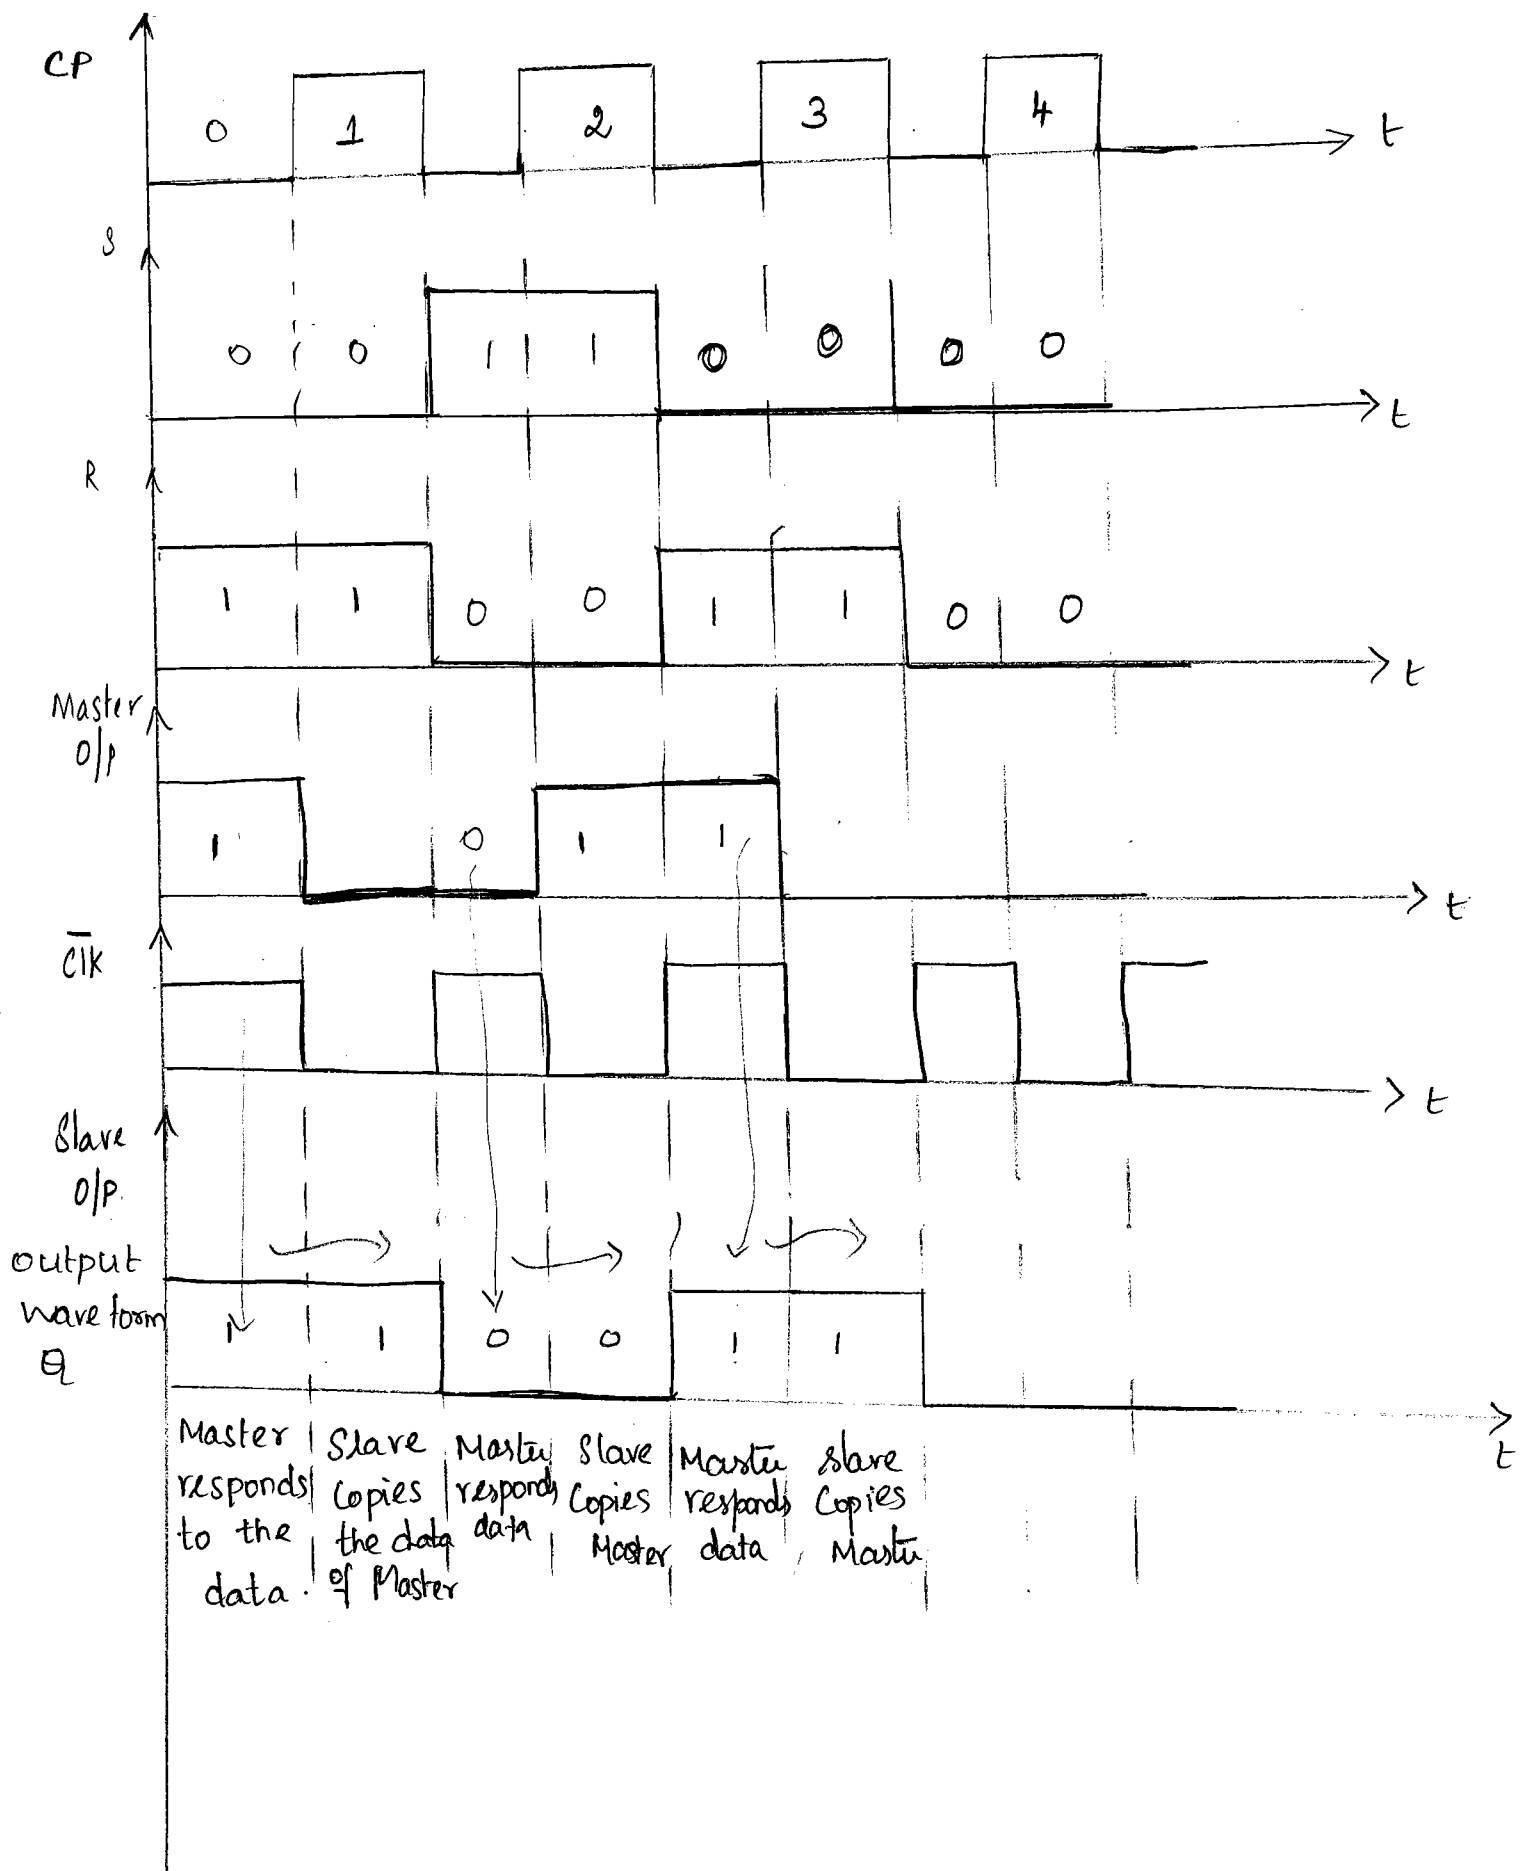 CP
0 1 2 3 4 t
S
0 0 1 1 0 0 0 0
t
R
1 1 0 0 1 1 0 0
t
Master
O/P
1 0 1 1
t
C̅l̅k̅
t
Slave
O/P.
output
waveform
Q
1 1 0 0 1 1
t
Master responds to the data.
Slave copies the data of Master
Master responds data
Slave Copies Master
Master responds data
slave Copies Master